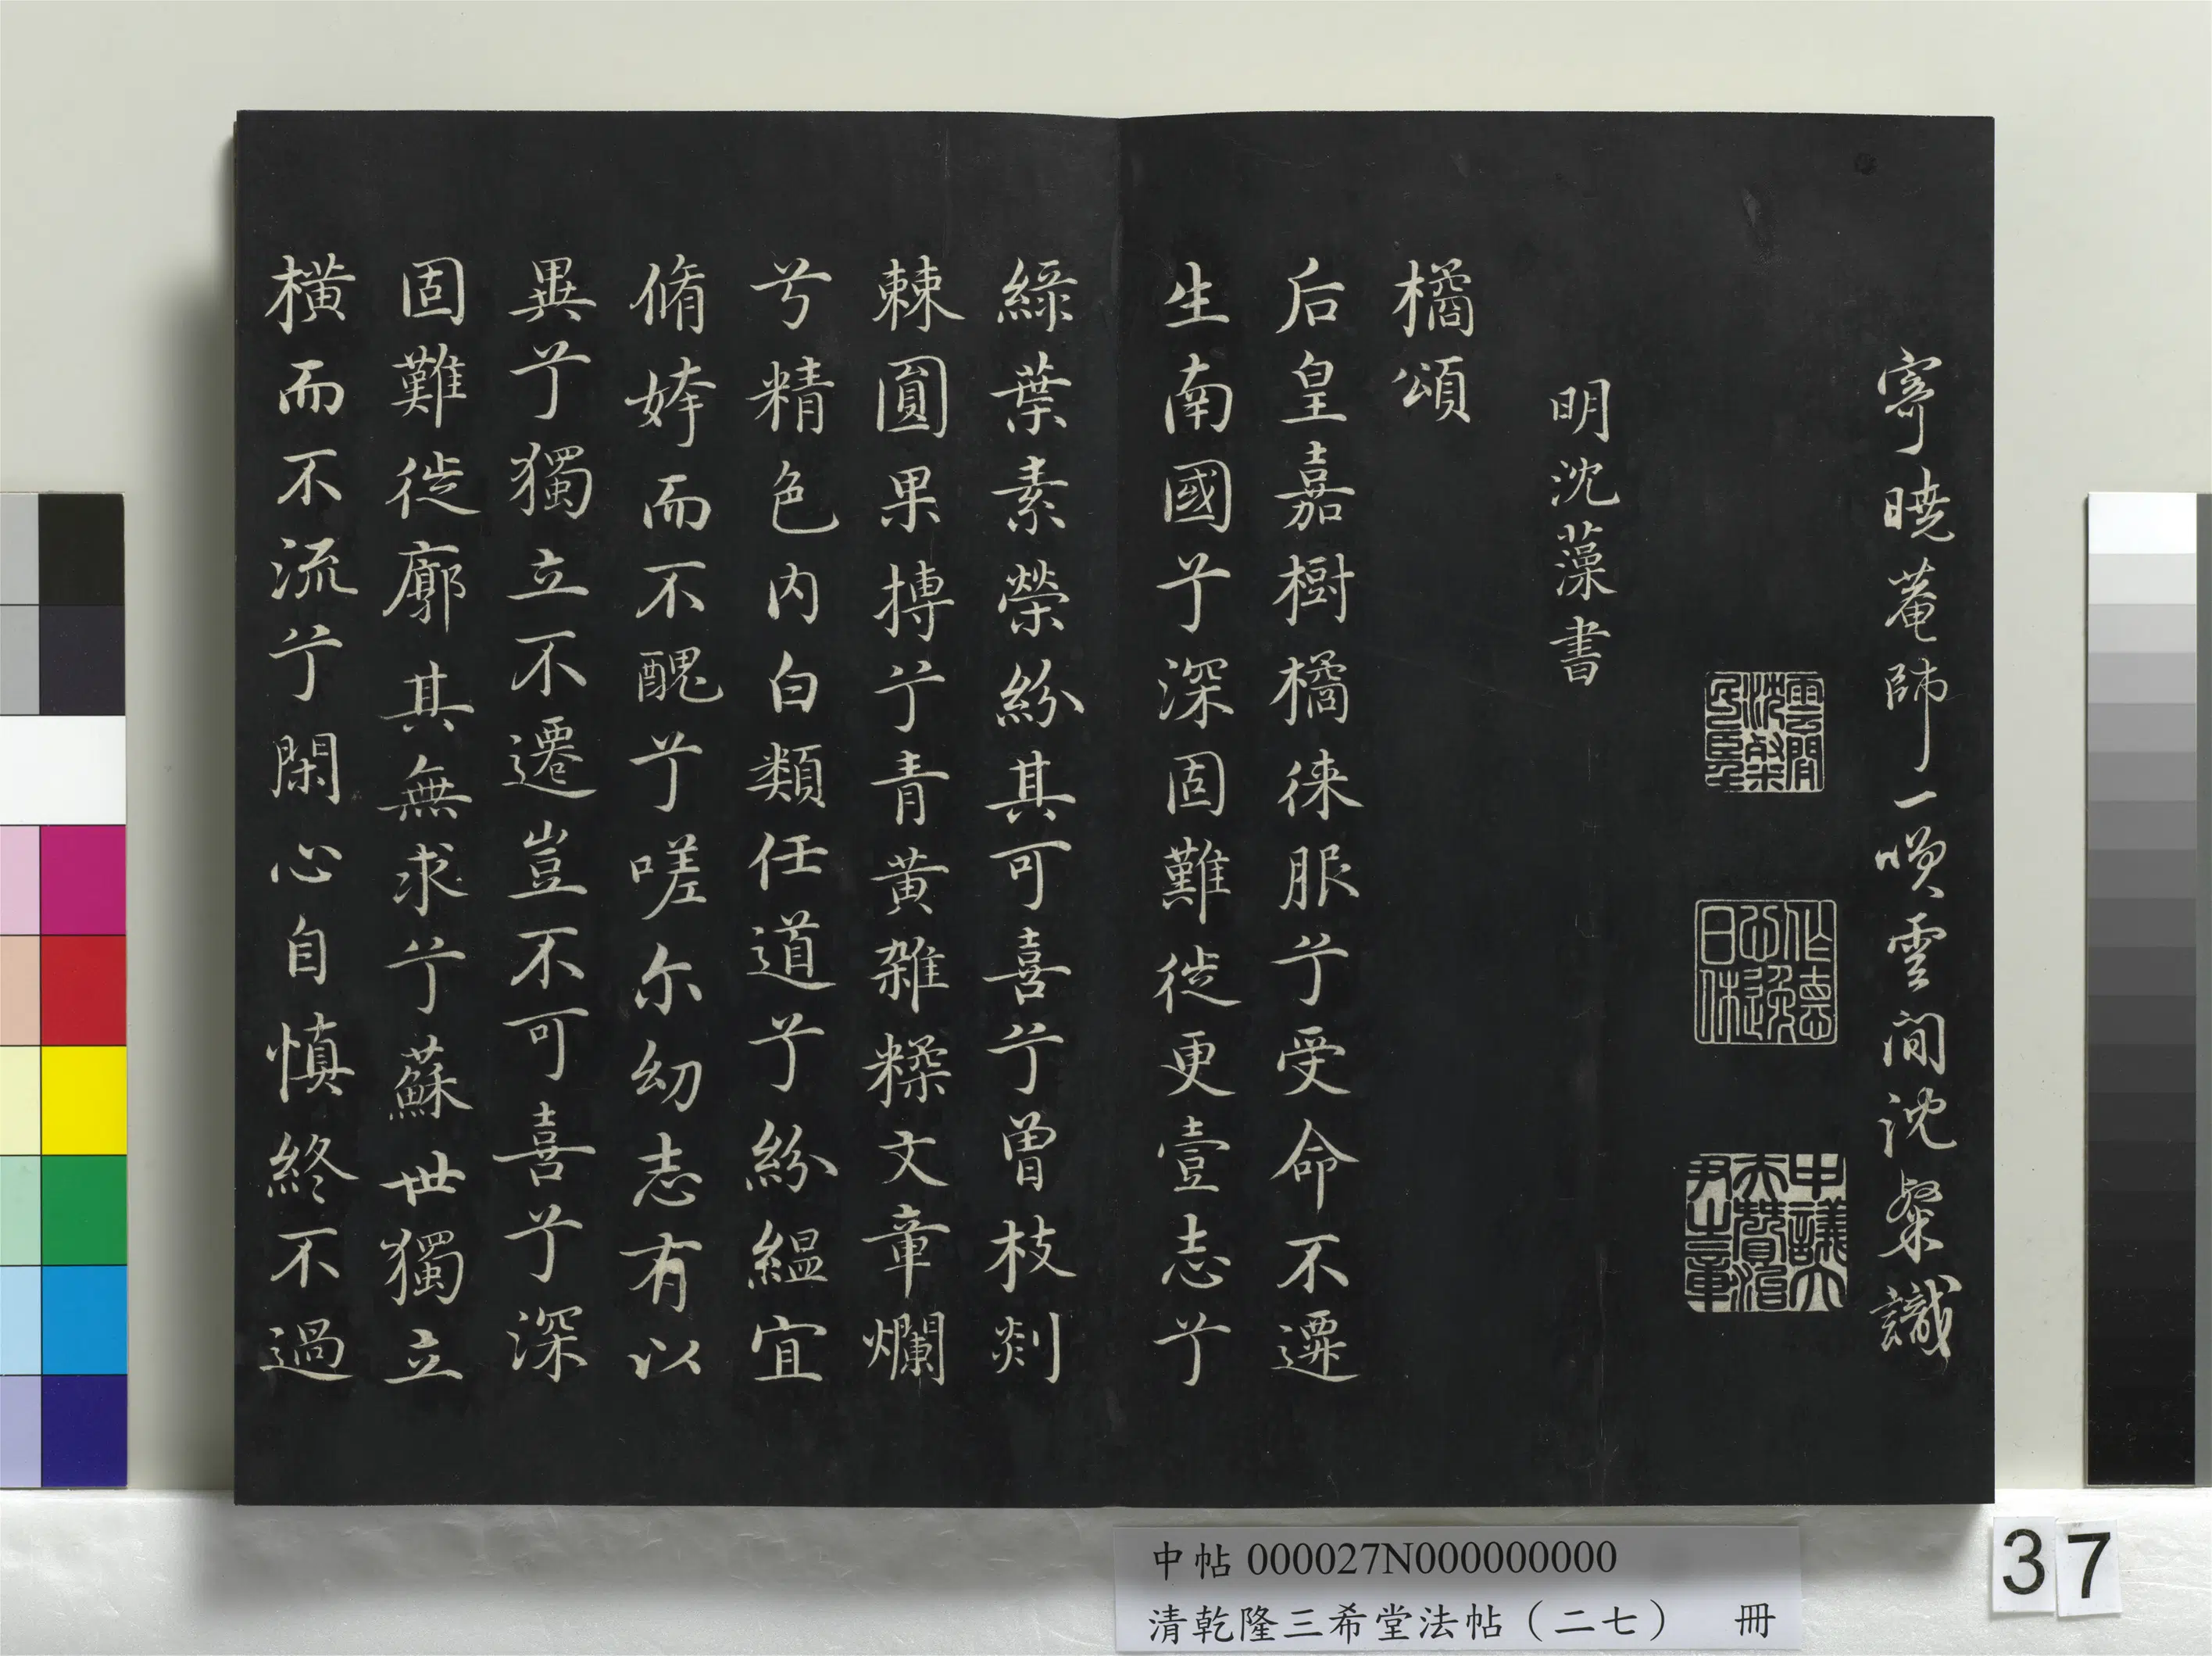 寄曉菴師一噗雲間沈粲識
雲間沈粲
作德心逸日休
中議大夫贊治尹之章
明沈藻書
橘頌
后皇嘉樹橘徠服兮受命不遷
生南國兮深固難徙更壹志兮
綠葉素榮紛其可喜兮曾枝剡
棘圓果摶兮青黃雜糅文章爛
兮精色內白類任道兮紛緼宜
脩姱而不醜兮嗟尔幼志有以
異兮獨立不遷豈不可喜兮深
固難徙廓其無求兮蘇世獨立
橫而不流兮閑心自慎終不過
中帖 000027N000000000
清乾隆三希堂法帖(二七) 冊
37